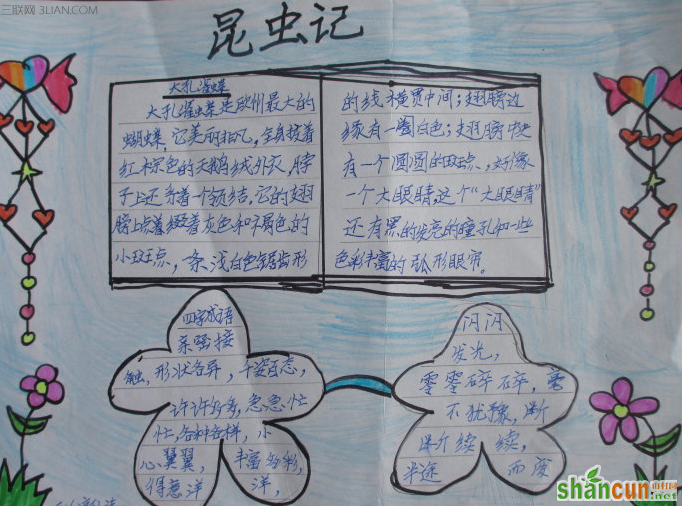 三联网 3LIAN.COM
昆虫记
大孔雀蝶
大孔雀蝶是欧州最大的
蝴蝶,它美丽非凡,全身披着
红木棕色的天鹅绒外衣,脖
子上还系着一个领结.它的翅
膀上点着缀着灰色和褐色的
小斑点,一条浅白色锯齿形
的线横贯中间;翅膀边
缘有一圈白色;翅膀中央
有一个圆圆的斑点,好像
一个大眼睛,这个"大眼睛"
还有黑的发亮的瞳孔和一些
色彩丰富的弧形眼帘。
四字成语
亲密接
触,形状各异,千姿百态,
许许多多,急急忙
忙,各种各样,小
心翼翼,丰富多彩,
得意洋洋,
闪闪
发光,
零零碎碎,毫
不犹豫,断
断续续,
半途而废
shancun